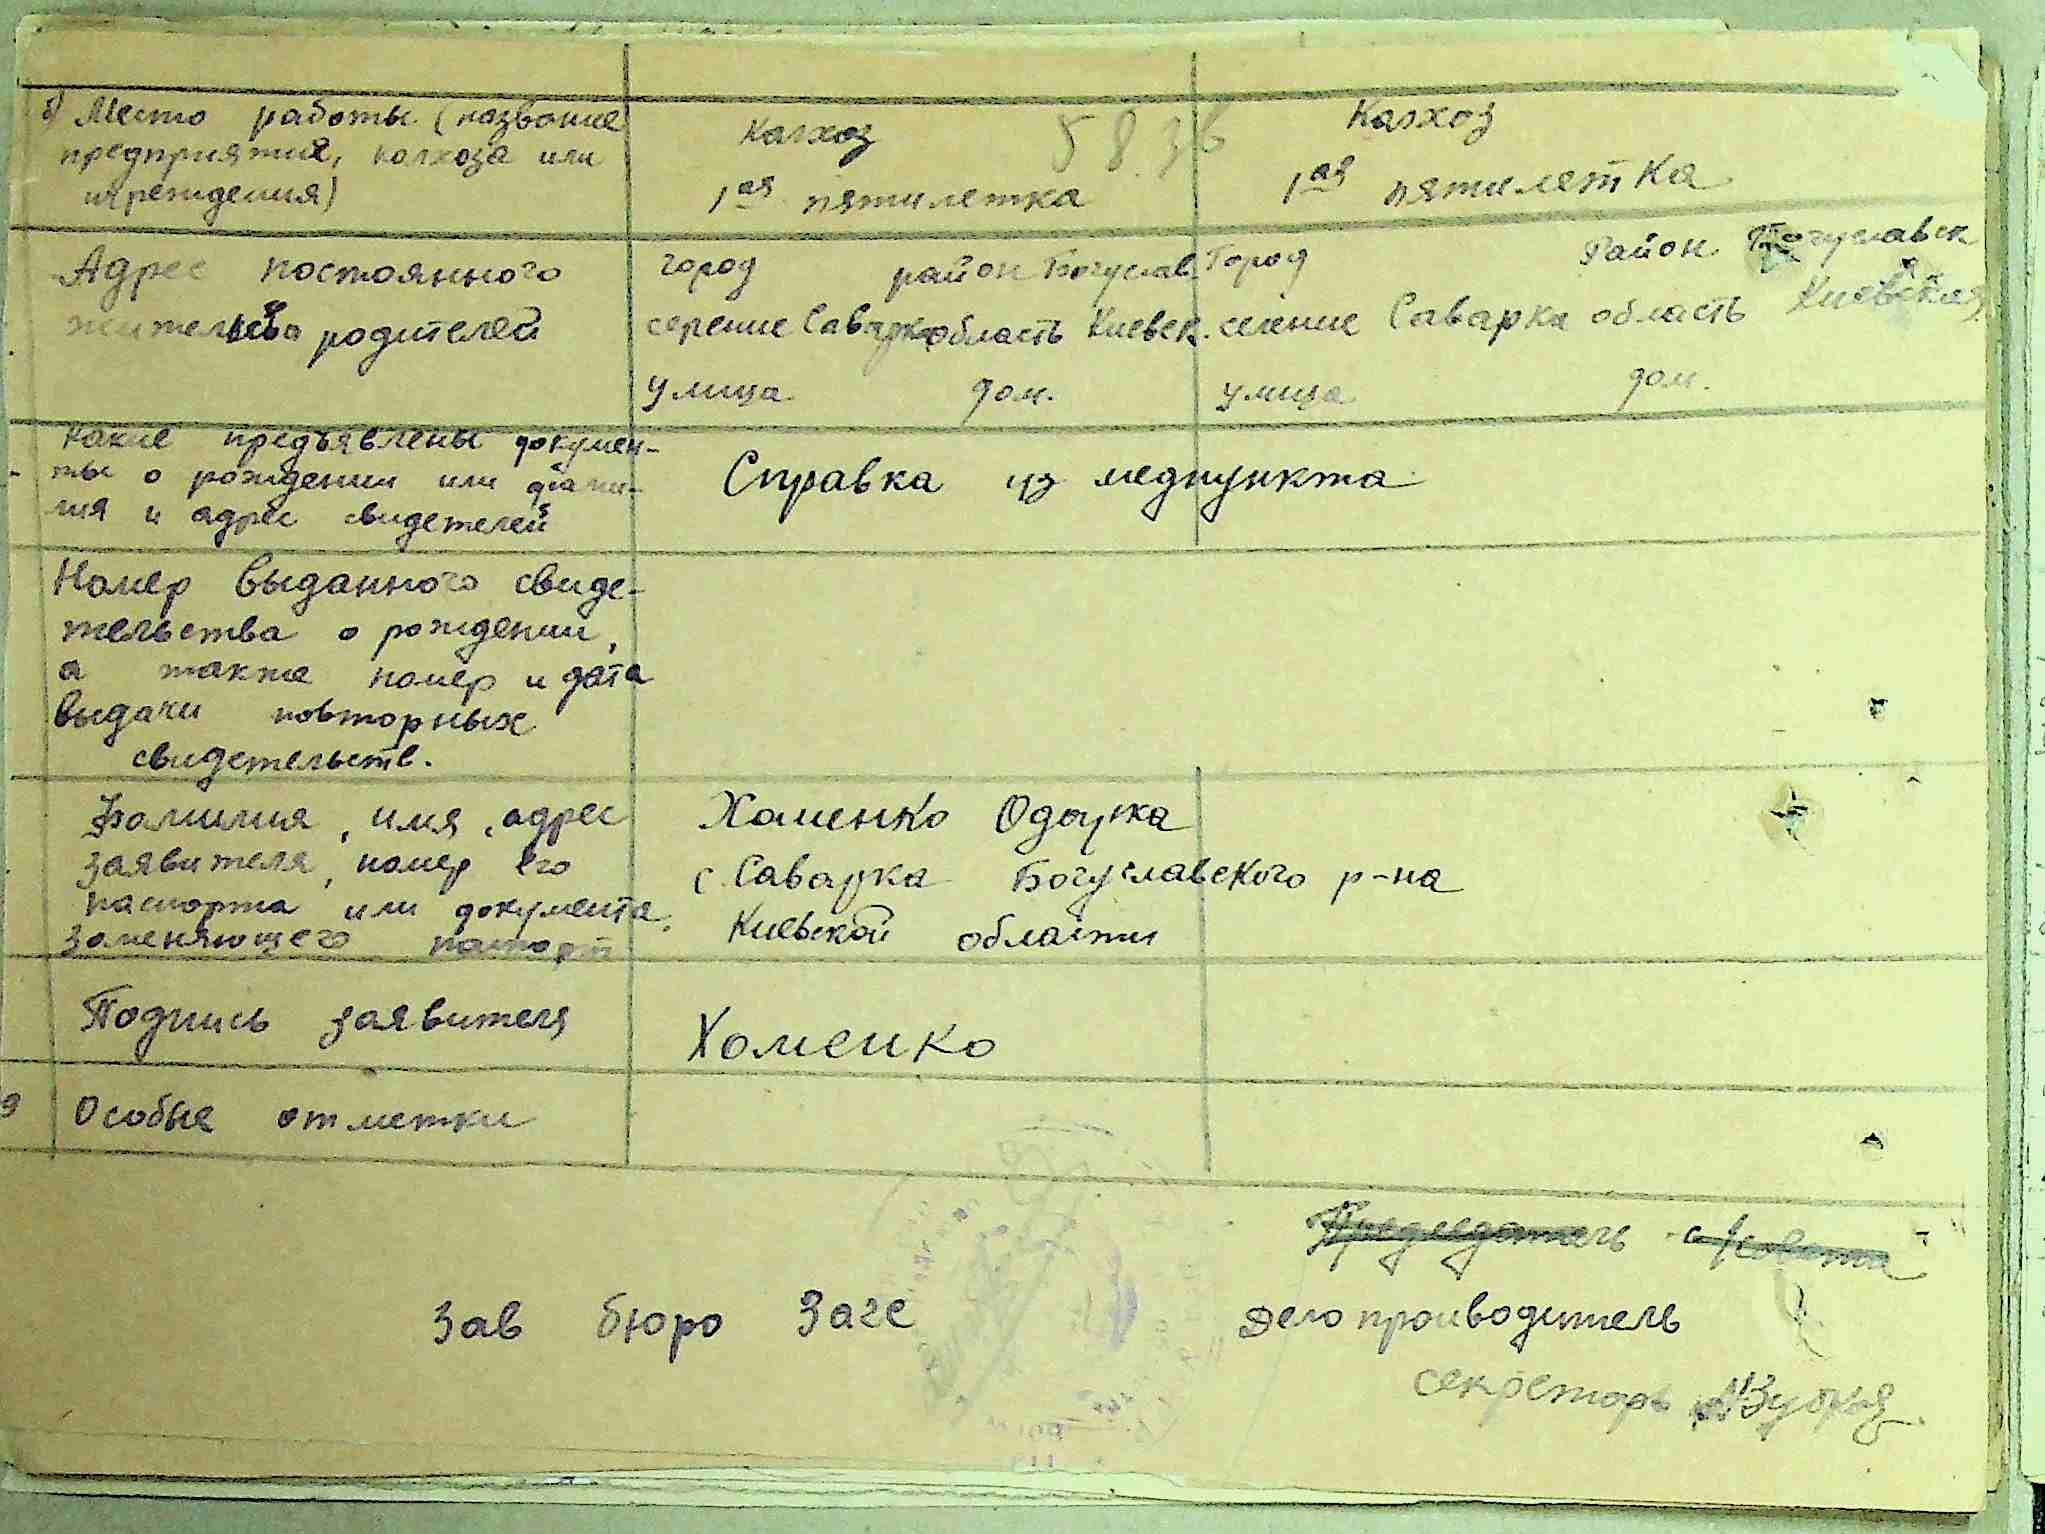 в) Место работы (название
предприятия, колхоза или
учреждения)
Колхоз
1ая пятилетка
Колхоз
1ая пятилетка
Адрес постоянного
жительства родителей
город район Богуслав
селение Саварка область Киевск.
улица дом.
Город Район Богуславск
селение Саварка область Киевская
улица дом.
Какие предъявлены докумен-
ты о рождении или фами-
лия и адрес свидетелей
Справка из медпункта
Номер выданного свиде-
тельства о рождении,
а также номер и дата
выдачи повторных
свидетельств.
Фамилия, имя, адрес
заявителя, номер его
паспорта или документа,
заменяющего паспорт
Хоменко
с. Саварка Богуславского р-на
Киевской области
Подпись заявителя
Хоменко
9 Особые отметки
Председатель с/совета
Зав бюро Загс
Делопроизводитель
секреторь